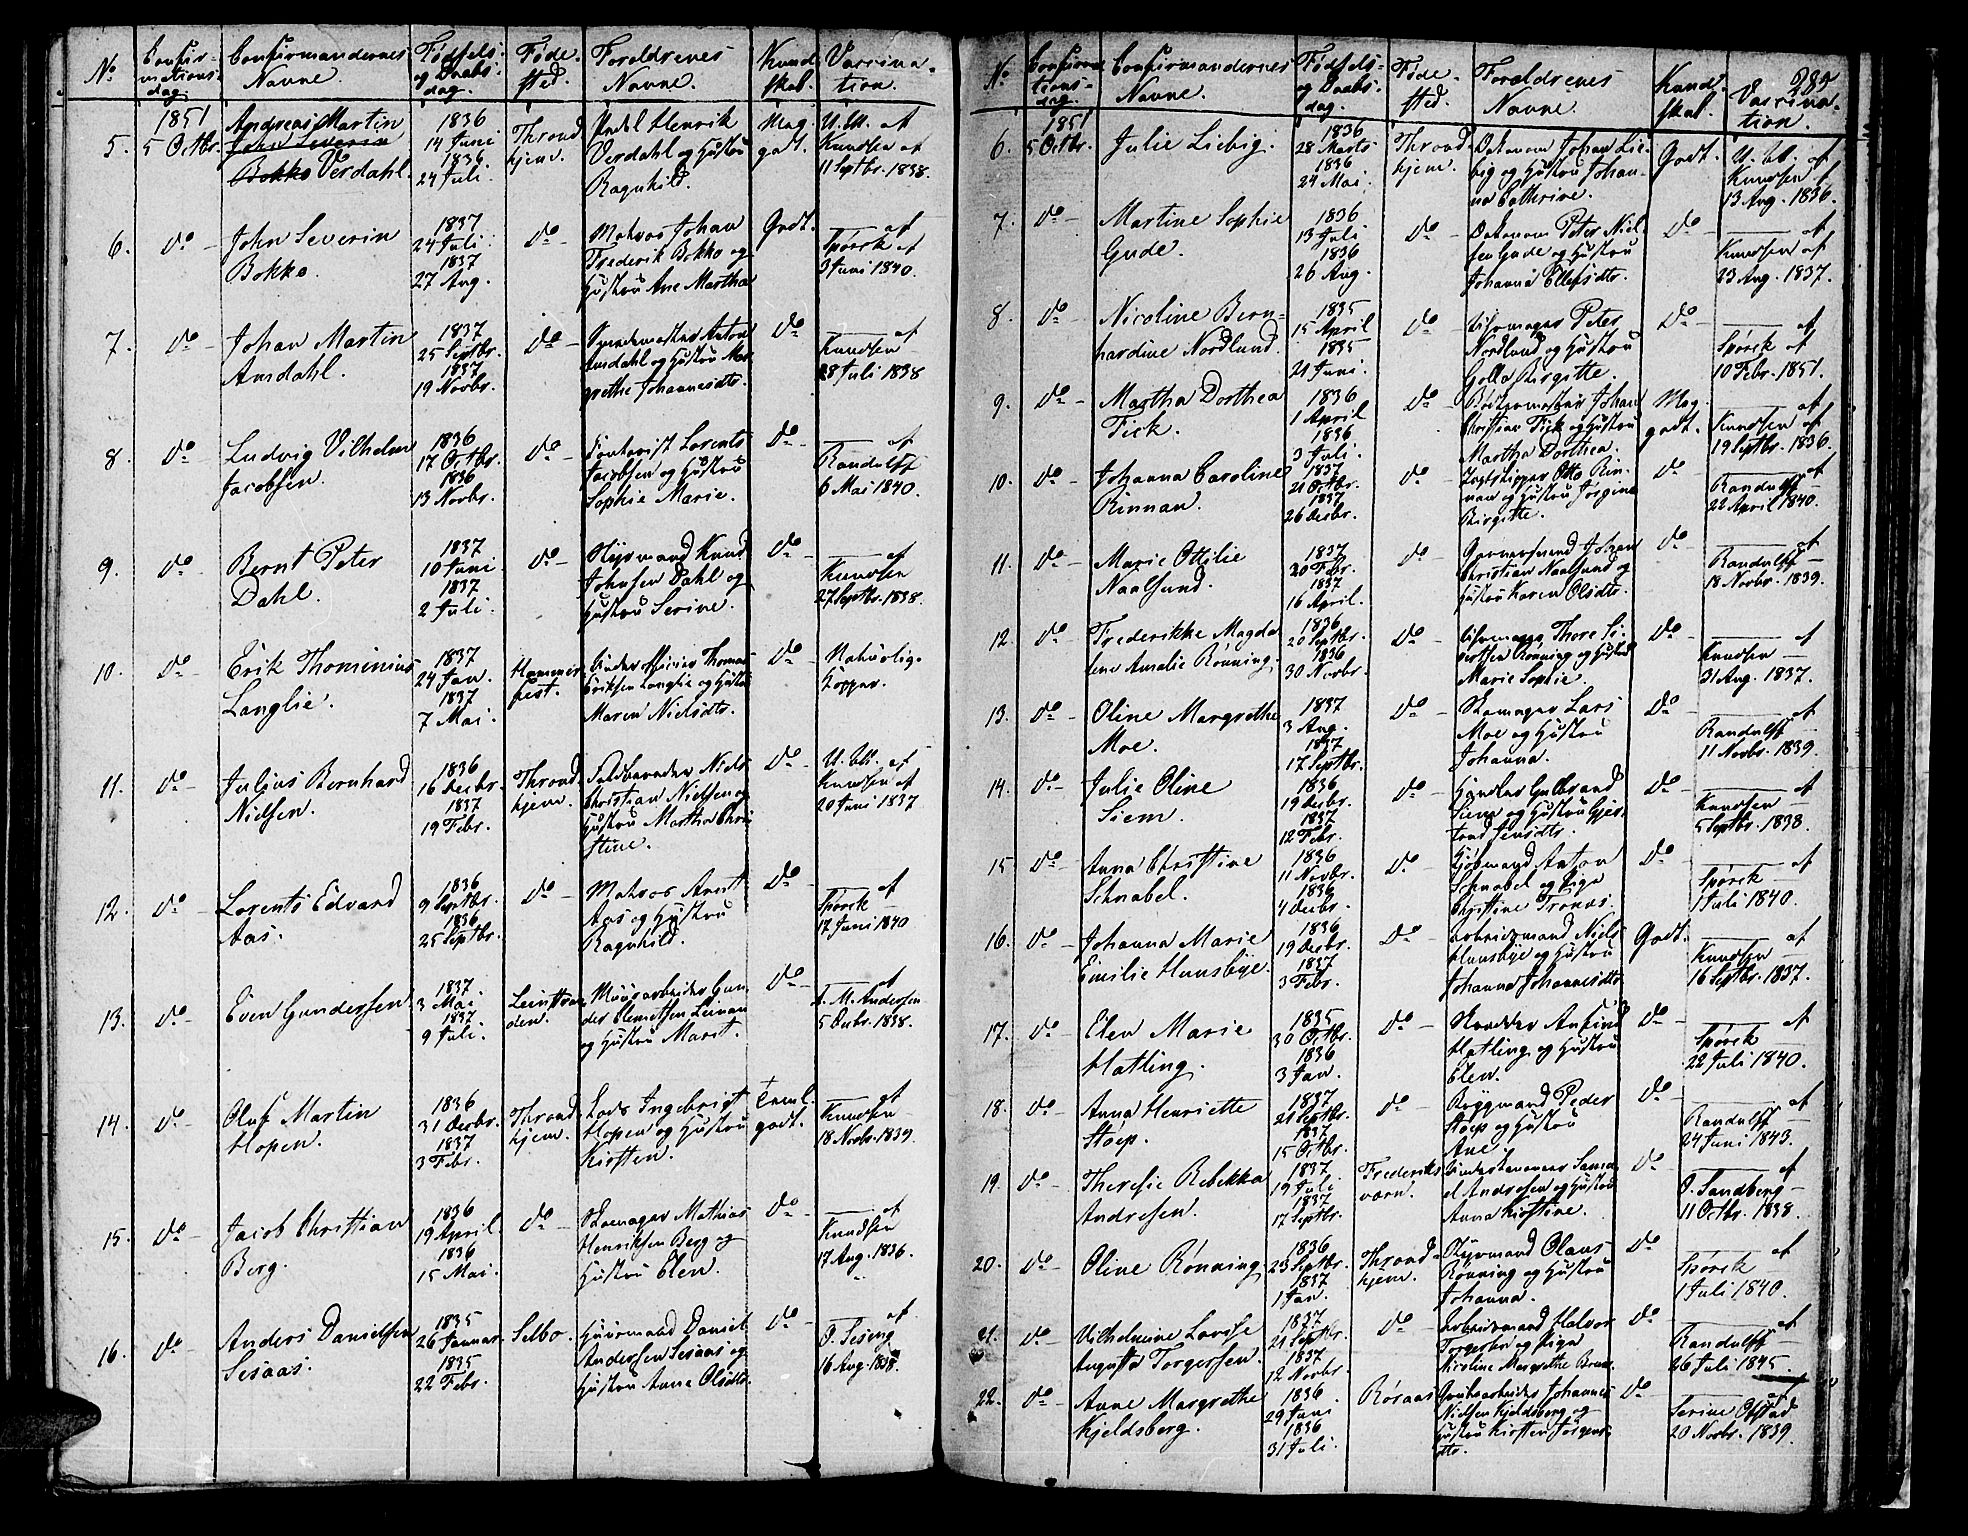 No Confir- Confirmandernes Fødsels- Føde- Forældrenes Kund- Vaccina-
mations- Navne. og Daabs- sted. Navne. skab. tion.
dag. dag.
1851 Andreas Martin 1836 Thrond- Henrik Meg. U. bl. af
5. 5 Octbr. John Severin 14 Juni hjem. Verdahl og Hustru godt. Knudsen af
Bokko Verdahl. 1836 Ragnhild. 11 Septbr. 1838.
24 Juli.
6. do John Severin 1837 do Matros Johan Godt. af
Bokko. 24 Juli Frederik Bokko og Spörck af
1837 Hustru Ane Martha 3 Juni 1840.
27 Aug.
7. do Johan Martin 1837 do Anton do af
Amdahl. 25 Septbr. Amdahl og Hustru Mar- Knudsen
1837 grethe Johannesdtr. 28 Juli 1838
19 Novbr.
8. do Ludvig Vilhelm 1836 do Lorents do af
Jacobsen. 17 Octbr. Jacobsen og Hustru Randulff
1836 Sophie Marie. 6 Mai 1840.
13 Novbr.
9. do Bernt Peter 1837 do Styrmand Knud do af
Dahl. 10 Juni Johnsen Dahl og Knudsen
1837 Hustru Serine. 27 Septbr. 1838.
2 Juli.
10. do Erik Thominius 1837 Hammer- Thomas do Naturlig-
Langlie. 24 Jan. fest. Eriksen Langlie og Hustru Kopper.
1837 Maren Nielsdtr.
7 Mai.
11. do Julius Bernhard 1836 Thrond- Niels do U. bl. af
Nielsen. 16 Decbr. hjem. Christian Nielsen og Knudsen af
1837 Hustru Martha Chri- 20 Juni 1837
19 Febr. stine.
12. do Lorents Edvard 1836 do Matros Arnt do af
Aas. 9 Septbr. Aas og Hustru Spörck
1836 Ragnhild. 17 Juni 1840
25 Septbr.
13. do Even Gundersen 1837 Leinstran- Muurarbeider Gun- do af
3 Mai den. der Clemetsen A. M. Andersen
1837 og Hustru Marit. 5 1838.
9 Juli.
14. do Oluf Martin 1836 Thrond- Lods Ingebrigt Teml. af
Hopen. 31 Decbr. hjem. Hopen og Hustru godt. Knudsen
1837 Kirsten. 18 Novbr. 1839.
3 Febr.
15. do Jacob Christian 1836 do Skomager Mathias do af
Berg. 19 April Henriksen Berg og Knudsen
1836 Hustru Elen. 17 Aug. 1836.
15 Mai.
16. do Anders Danielsen 1835 Selbo. Huusmand Daniel do af
Sesaas. 26 Januar Andersen Sesaas og O. Seseng
1835 Hustru Anne Olsdtr. 16 Aug. 1838.
22 Febr.
285
No Confirma- Confirmandernes Fødsels- Føde- Forældrenes Kund- Vaccina-
tions- Navne. og Daabs- sted. Navne. skab. tion.
dag. dag.
1851 1836
6. 5 Octbr. Julie Liebig. 28 Marts Thrond- Johan Lie- Godt. U. bl. af
1836 hjem. big og Hustru Johan- Knudsen af
24 Mai. na Cathrine. 13 Aug. 1836.
7. do Martine Sophie 1836 do Peter Niel- do af
Gude. 13 Juli sen Gude og Hustru Knudsen af
1836 Johanna Ellefsdtr. 23 Aug. 1837.
26 Aug.
8. do Nicoline Bern- 1835 do Peter do af
hardine Nordlund. 15 April Nordlund og Hustru Spörck af
1835 Birgitte. 10 Febr. 1851.
21 Juni.
9. do Martha Dorthea 1836 do Johan Meg. af
Fick. 1 April Christian Fick og Hustru godt. Knudsen af
1836 Martha Dorthea. 19 Septbr. 1836.
3 Juli.
10. do Johanna Caroline 1837 do Otto Rin- do af
Rinnan. 21 Octbr. nan og Hustru Jörgine Randulff
1837 Birgitte. 22 April 1840.
26 Decbr.
11. do Marie Ottilie 1837 do Johan do af
Naalsund. 20 Febr. Christian Naalsund og Randulff
1837 Hustru Karen Olsdtr. 18 Novbr. 1839.
16 April.
12. do Frederikke Magda- 1836 do Thore Si- do af
lene Amalie Rönning. 20 Septbr. vertsen Rönning og Hustru Knudsen
1836 Marie Sophie. 31 Aug. 1837.
30 Novbr.
13. do Oline Margrethe 1837 do Skomager Lars do af
Moe. 3 Aug. Moe og Hustru Randulff
1837 Johanna. 11 Novbr. 1839.
17 Septbr.
14. do Julie Oline 1836 do Gulbrand do af
Siem. 19 Decbr. Siem og Hustru Gjer- Knudsen
1837 trud Jensdtr. 5 Septbr. 1838.
12 Febr.
15 do Anna Christine 1836 do Kjøbmand Anton do af
Schnabel. 11 Novbr. Schnabel og Pige Spörck
1836 Christine Tronas. 1 Juli 1840.
4 Decbr.
16. do Johanna Marie 1836 do Arbeidsmand Niels Godt. af
Emilie Hunsbye. 19 Decbr. Hunsbye og Hustru Knudsen
1837 Johanna Johannesdtr. 16 Septbr. 1837.
3 Febr.
17. do Elen Marie 1835 do Skrædder Anfind do af
Hatling. 30 Octbr. Hatling og Hustru Spörck
1836 Elen. 22 Juli 1840.
3 Jan.
18. do Anna Henriette 1837 do Byggmand Peder do af
Støep. 21 Septbr. Støep og Hustru Randulff
1837 Ane. 24 Juni 1843.
15 Octbr.
19. do Theresie Rebekka 1837 Frederiks- Samu- do af
Andresen. 19 Juli værn. el Andresen og Hustru O. Sandberg
1837 Anna Kirstine. 11 Octbr. 1838.
17 Septbr.
20. do Oline Rønning 1836 Thrond- Styrmand Olaus do af
23 Septbr. hjem. Rönning og Hustru Spörck
1837 Johanna. 1 Juli 1840.
1 Jan.
21. do Vilhelmine Lovise 1837 do Arbeidsmand Halvor do af
Augusta Torgersen. 21 Septbr. Torgersen og Pige Randulff
1837 Nicoline Margrethe 26 Juli 1845.
12 Novbr.
22. do Anne Margrethe 1836 Röraas Grubearbeider Johannes do af
Kjeldsberg. 29 Juni Nielsen Kjeldsberg og Serine Opstad
1836 Hustru Kirsten Jörgens- 20 Novbr. 1839.
31 Juli. dtr.